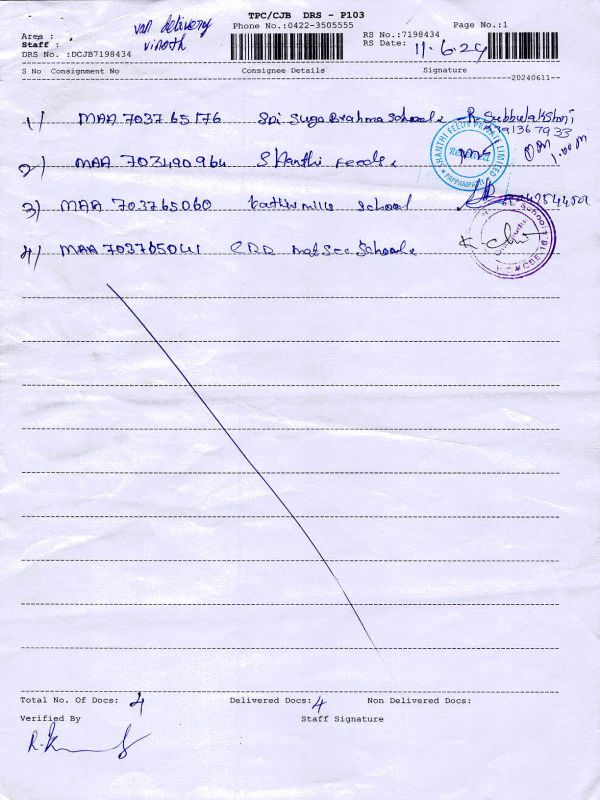 TPC/CJB DRS - P103
Area : ,
van delivery
Phone No.:0422-3505555
Page No.:1
Staff :
vinoth
RS No.:7198434
DRS No. :DCJB7198434
RS Date: 11.6.24
S No Consignment No Consignee Details Signature
20240611--
1) MAA 703765176 Sri Suga Brahma Schools R. Subbulakshmi
1.00 pm
2) MAA 703490964 Shanthi Feeds
SHANTHI FEEDS PRIVATE LIMITED
PAPPAMPATTI
3) MAA 703765060 school
4) MAA 703765041 matsec Schools
Total No. Of Docs: 4 Delivered Docs: 4 Non Delivered Docs:
Verified By Staff Signature